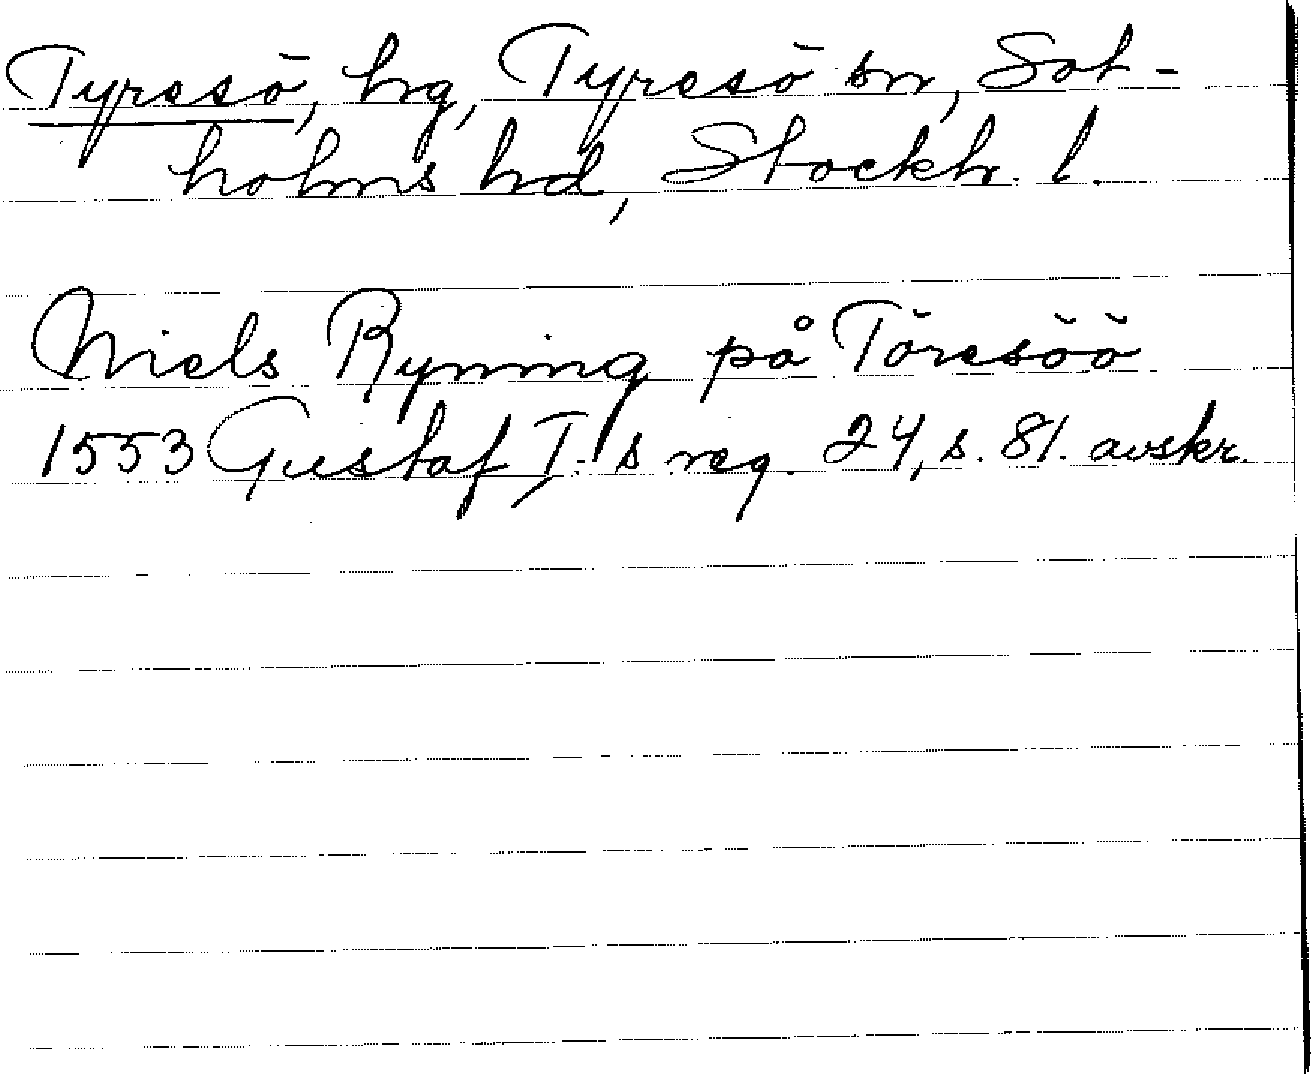 Tyresö, hg, Tyresö sn, Sot-
holms hd, Stockh. l.
Niels Ryning på Töresöö
1553 Gustaf I:s reg. 24, s. 81. avskr.